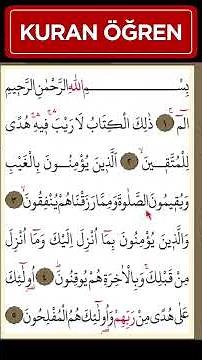 KURAN ÖĞREN
بِسْمِ اللّٰهِ الرَّحْمٰنِ الرَّحِيمِ
الٓمٓ ﴿١﴾ ذٰلِكَ الْكِتَابُ لَا رَيْبَ فِيهِ هُدًى
لِلْمُتَّقِينَ ﴿٢﴾ اَلَّذِينَ يُؤْمِنُونَ بِالْغَيْبِ
وَيُقِيمُونَ الصَّلٰوةَ وَمِمَّا رَزَقْنَاهُمْ يُنْفِقُونَ ﴿٣﴾
وَالَّذِينَ يُؤْمِنُونَ بِمَٓا اُنْزِلَ اِلَيْكَ وَمَٓا اُنْزِلَ
مِنْ قَبْلِكَ وَبِالْاٰخِرَةِ هُمْ يُوقِنُونَ ﴿٤﴾ اُولٰٓئِكَ
عَلٰى هُدًى مِنْ رَبِّهِمْ وَاُولٰٓئِكَ هُمُ الْمُفْلِحُونَ ﴿٥﴾